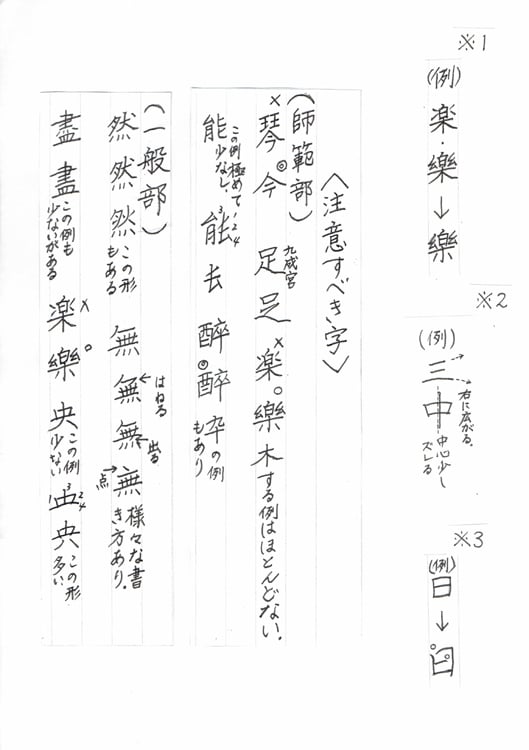 ※1
(例)
楽・樂→樂
※2
(例)
三中
右に広がる。
中心少し
ズレる
※3
(例)
日→日
〈注意すべき字〉
(師範部)
×琴◎今 足足 九成宮 ×楽○樂 木する例はほとんどない。
能 この例極めて少なし。能 酔◎醉 卆の例もあり
(一般部)
然然然 この形もある 無無無無 はねる 出る 点 様々な書き方あり。
盡盡 この例も少ないがある 楽×樂○ 央 この例少ない 央央 この形多い